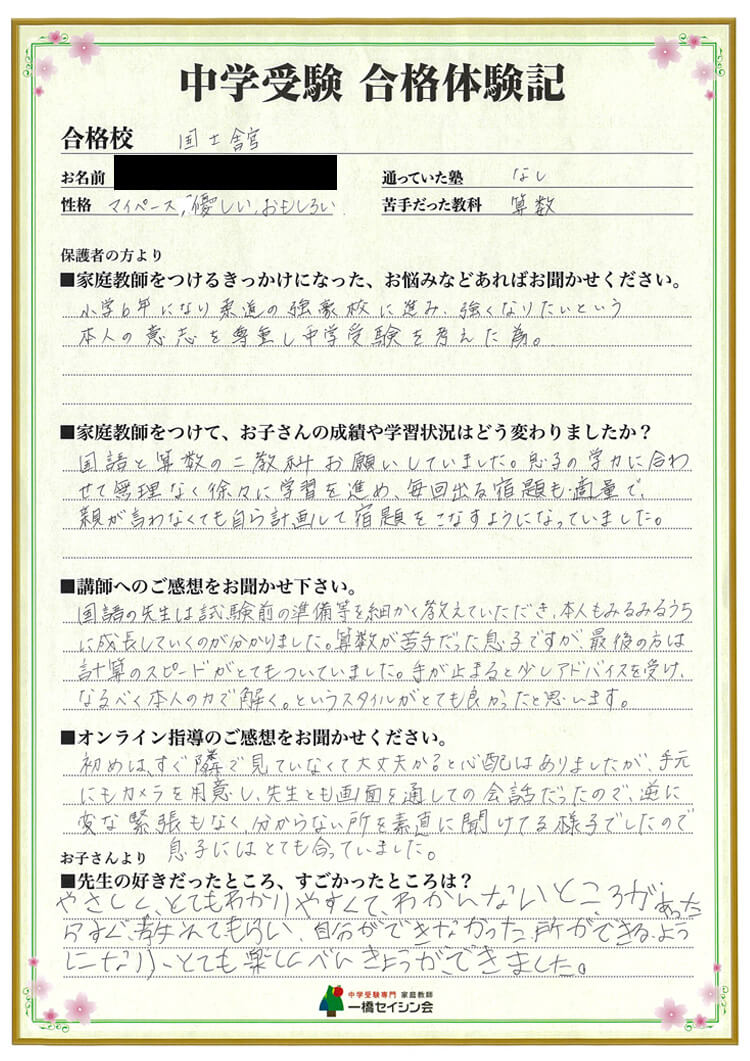 中学受験 合格体験記
合格校 国士舘
お名前
通っていた塾 なし
性格 マイペース,優しい,おもしろい
苦手だった教科 算数
保護者の方より
■家庭教師をつけるきっかけになった、お悩みなどあればお聞かせください。
小学6年になり柔道の強豪校に進み、強くなりたいという
本人の意志を尊重し中学受験を考えた為。
■家庭教師をつけて、お子さんの成績や学習状況はどう変わりましたか？
国語と算数の二教科お願いしていました。息子の学力に合わ
せて無理なく徐々に学習を進め、毎回出る宿題も適量で、
親が言わなくても自ら計画して宿題をこなすようになっていました。
■講師へのご感想をお聞かせ下さい。
国語の先生は試験前の準備等を細かく教えていただき、本人もみるみるうち
に成長していくのが分かりました。算数が苦手だった息子ですが、最後の方は
計算のスピードがとてもついていました。手が止まると少しアドバイスを受け、
なるべく本人の力で解く。というスタイルがとても良かったと思います。
■オンライン指導のご感想をお聞かせください。
初めは、すぐ隣で見ていなくて大丈夫かな?と心配はありましたが、手元
にもカメラを用意し、先生とも画面を通しての会話だったので、逆に
変な緊張もなく、分からない所を素直に聞けてる様子でしたので
息子にはとても合っていました。
お子さんより
■先生の好きだったところ、すごかったところは？
やさしく、とてもわかりやすくて、わかんないところがあった
らすぐ、教えてもらい、自分ができなかった所ができるよう
になり、とても楽しくべんきょうができました。
中学受験専門 家庭教師
一橋セイシン会